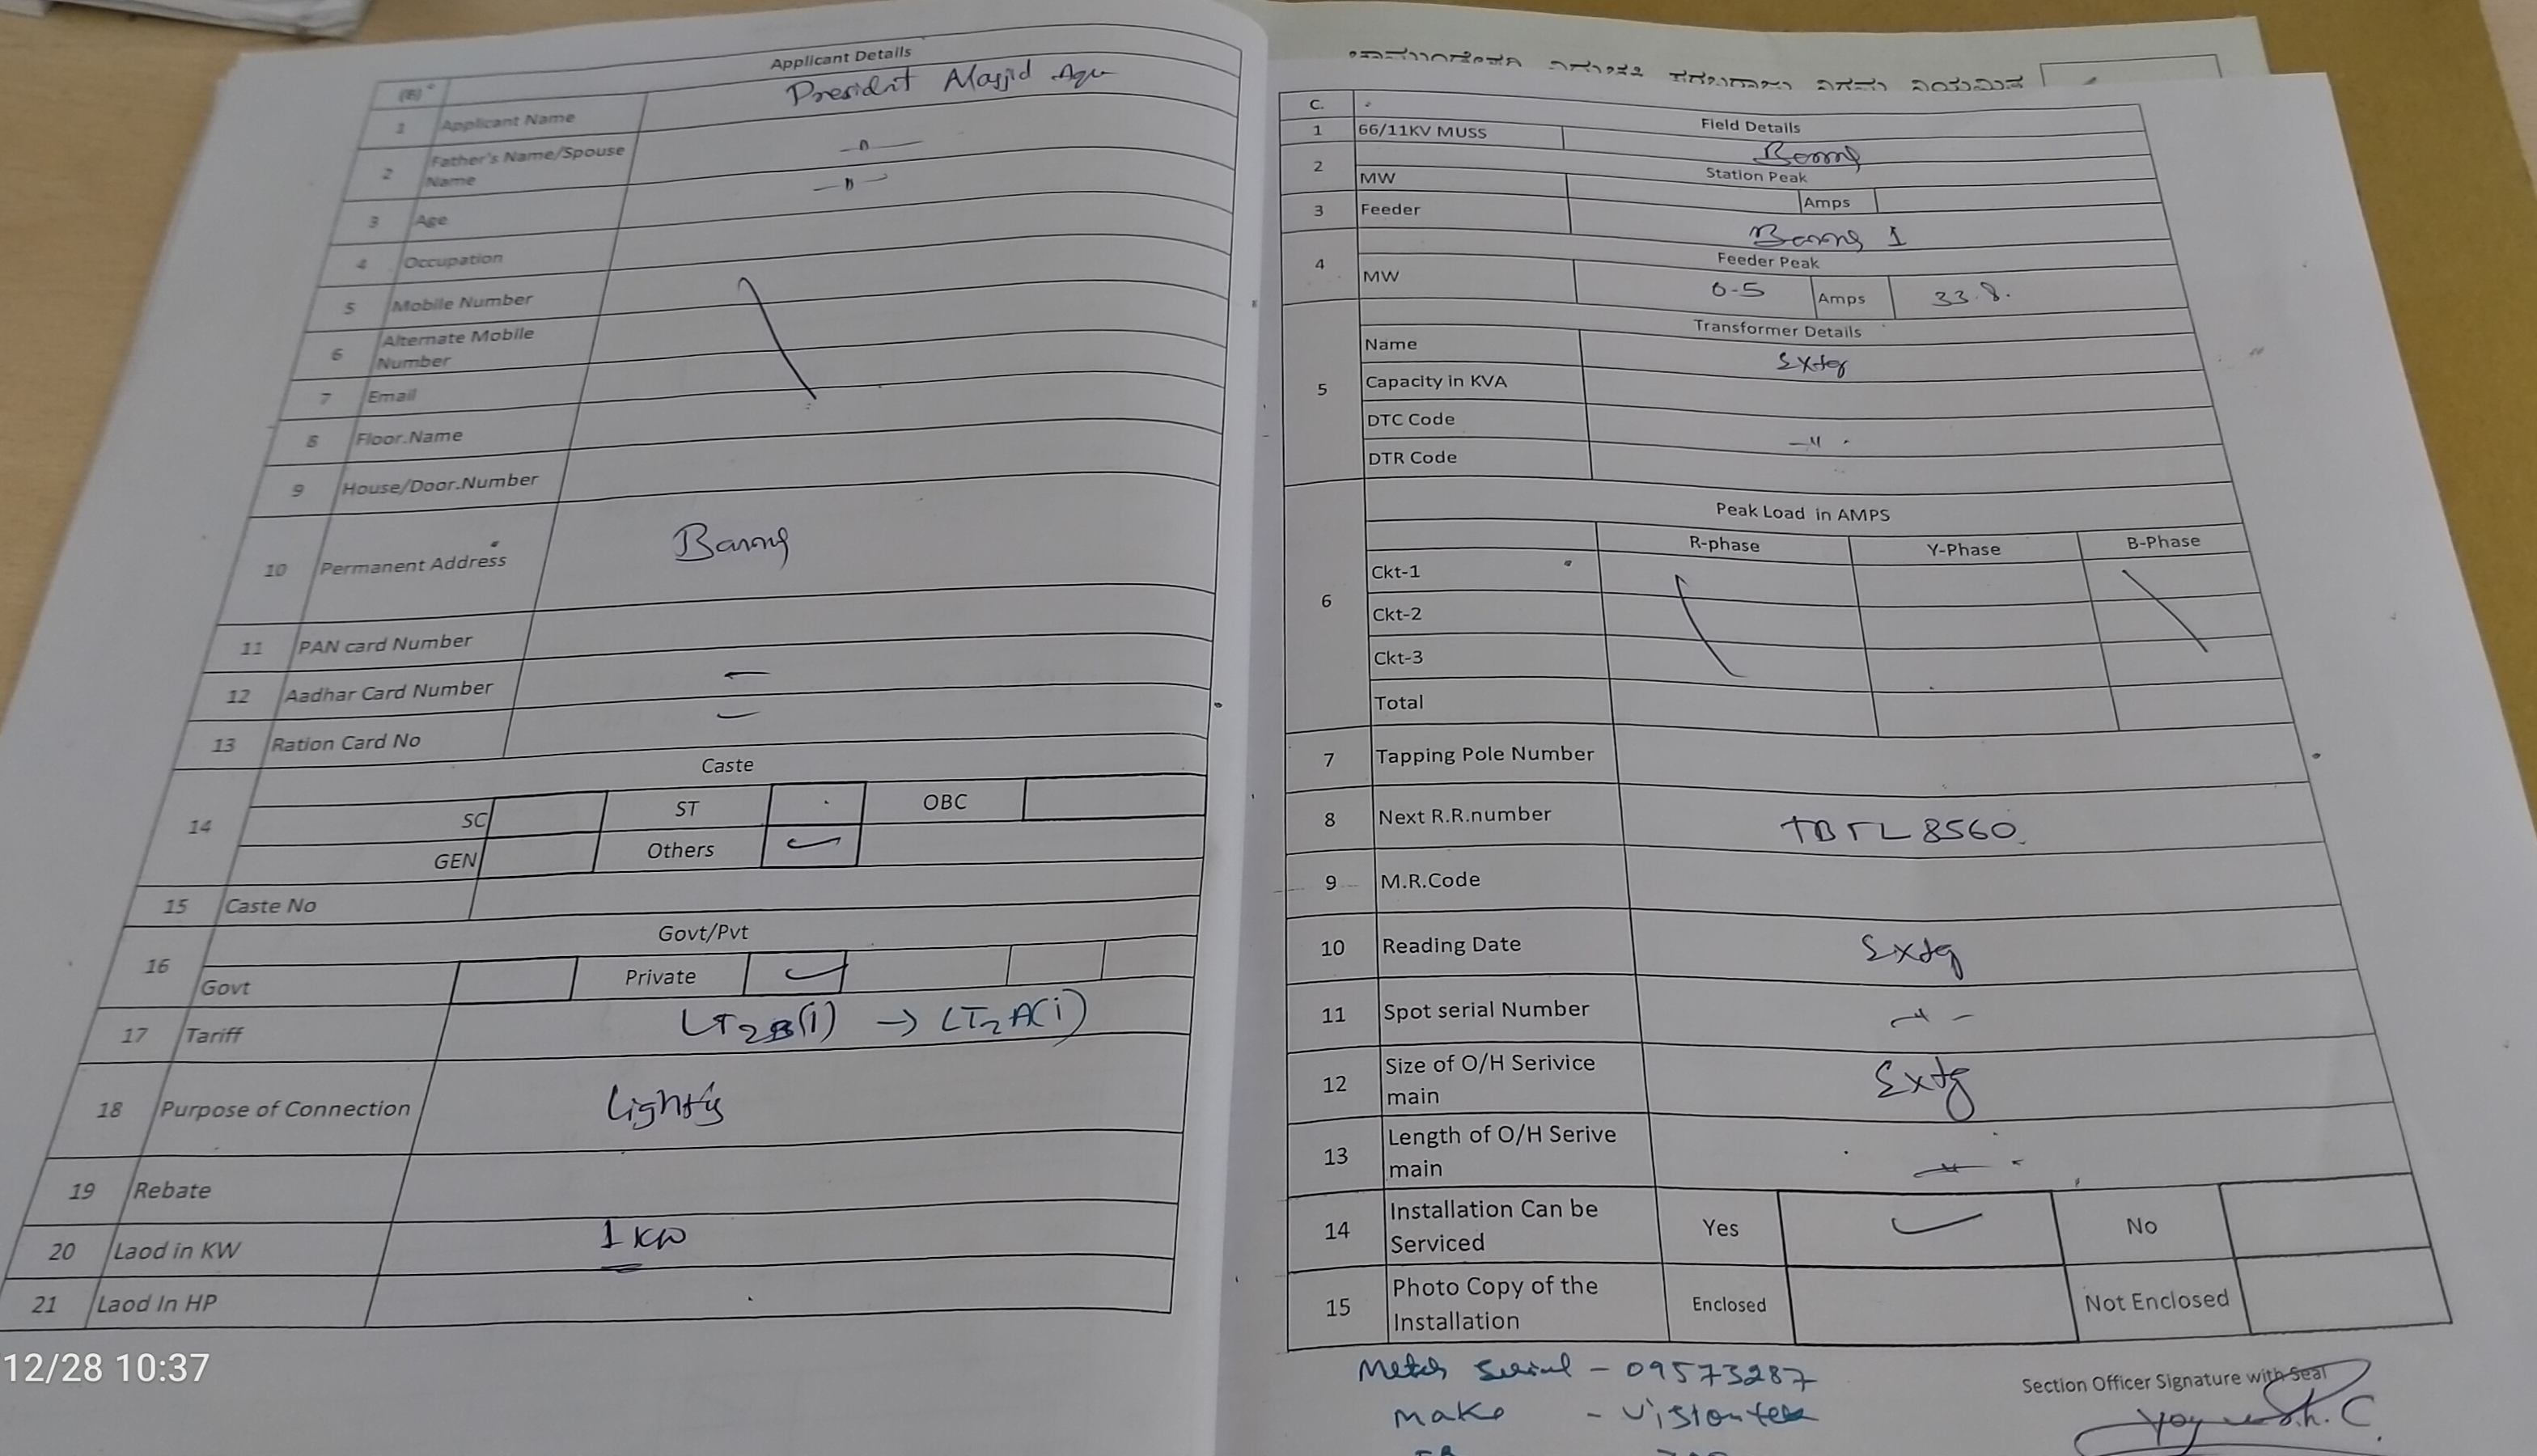 (B)
Applicant Details
1 Applicant Name President Masjid
2 Father's Name/Spouse Name
3 Age
4 Occupation
5 Mobile Number
6 Alternate Mobile Number
7 Email
8 Floor.Name
9 House/Door.Number
10 Permanent Address
11 PAN card Number
12 Aadhar Card Number
13 Ration Card No
14 Caste
SC ST OBC
GEN Others
15 Caste No
16 Govt/Pvt
Govt Private
17 Tariff LT2B(i) → LT2A(i)
18 Purpose of Connection
19 Rebate
20 Laod in KW 1 KW
21 Laod In HP
12/28 10:37
C. Field Details
1 66/11KV MUSS
2 Station Peak
MW Amps
3 Feeder
4 Feeder Peak
MW 0-5 Amps 33.8.
5 Transformer Details
Name Extg
Capacity in KVA
DTC Code
DTR Code
6 Peak Load in AMPS
R-phase Y-Phase B-Phase
Ckt-1
Ckt-2
Ckt-3
Total
7 Tapping Pole Number
8 Next R.R.number TBTL 8560
9 M.R.Code
10 Reading Date Extg
11 Spot serial Number
12 Size of O/H Serivice main Extg
13 Length of O/H Serive main
14 Installation Can be Serviced Yes No
15 Photo Copy of the Installation Enclosed Not Enclosed
Section Officer Signature with Seal
Meter Serial - 09573287
Make - Visiontek